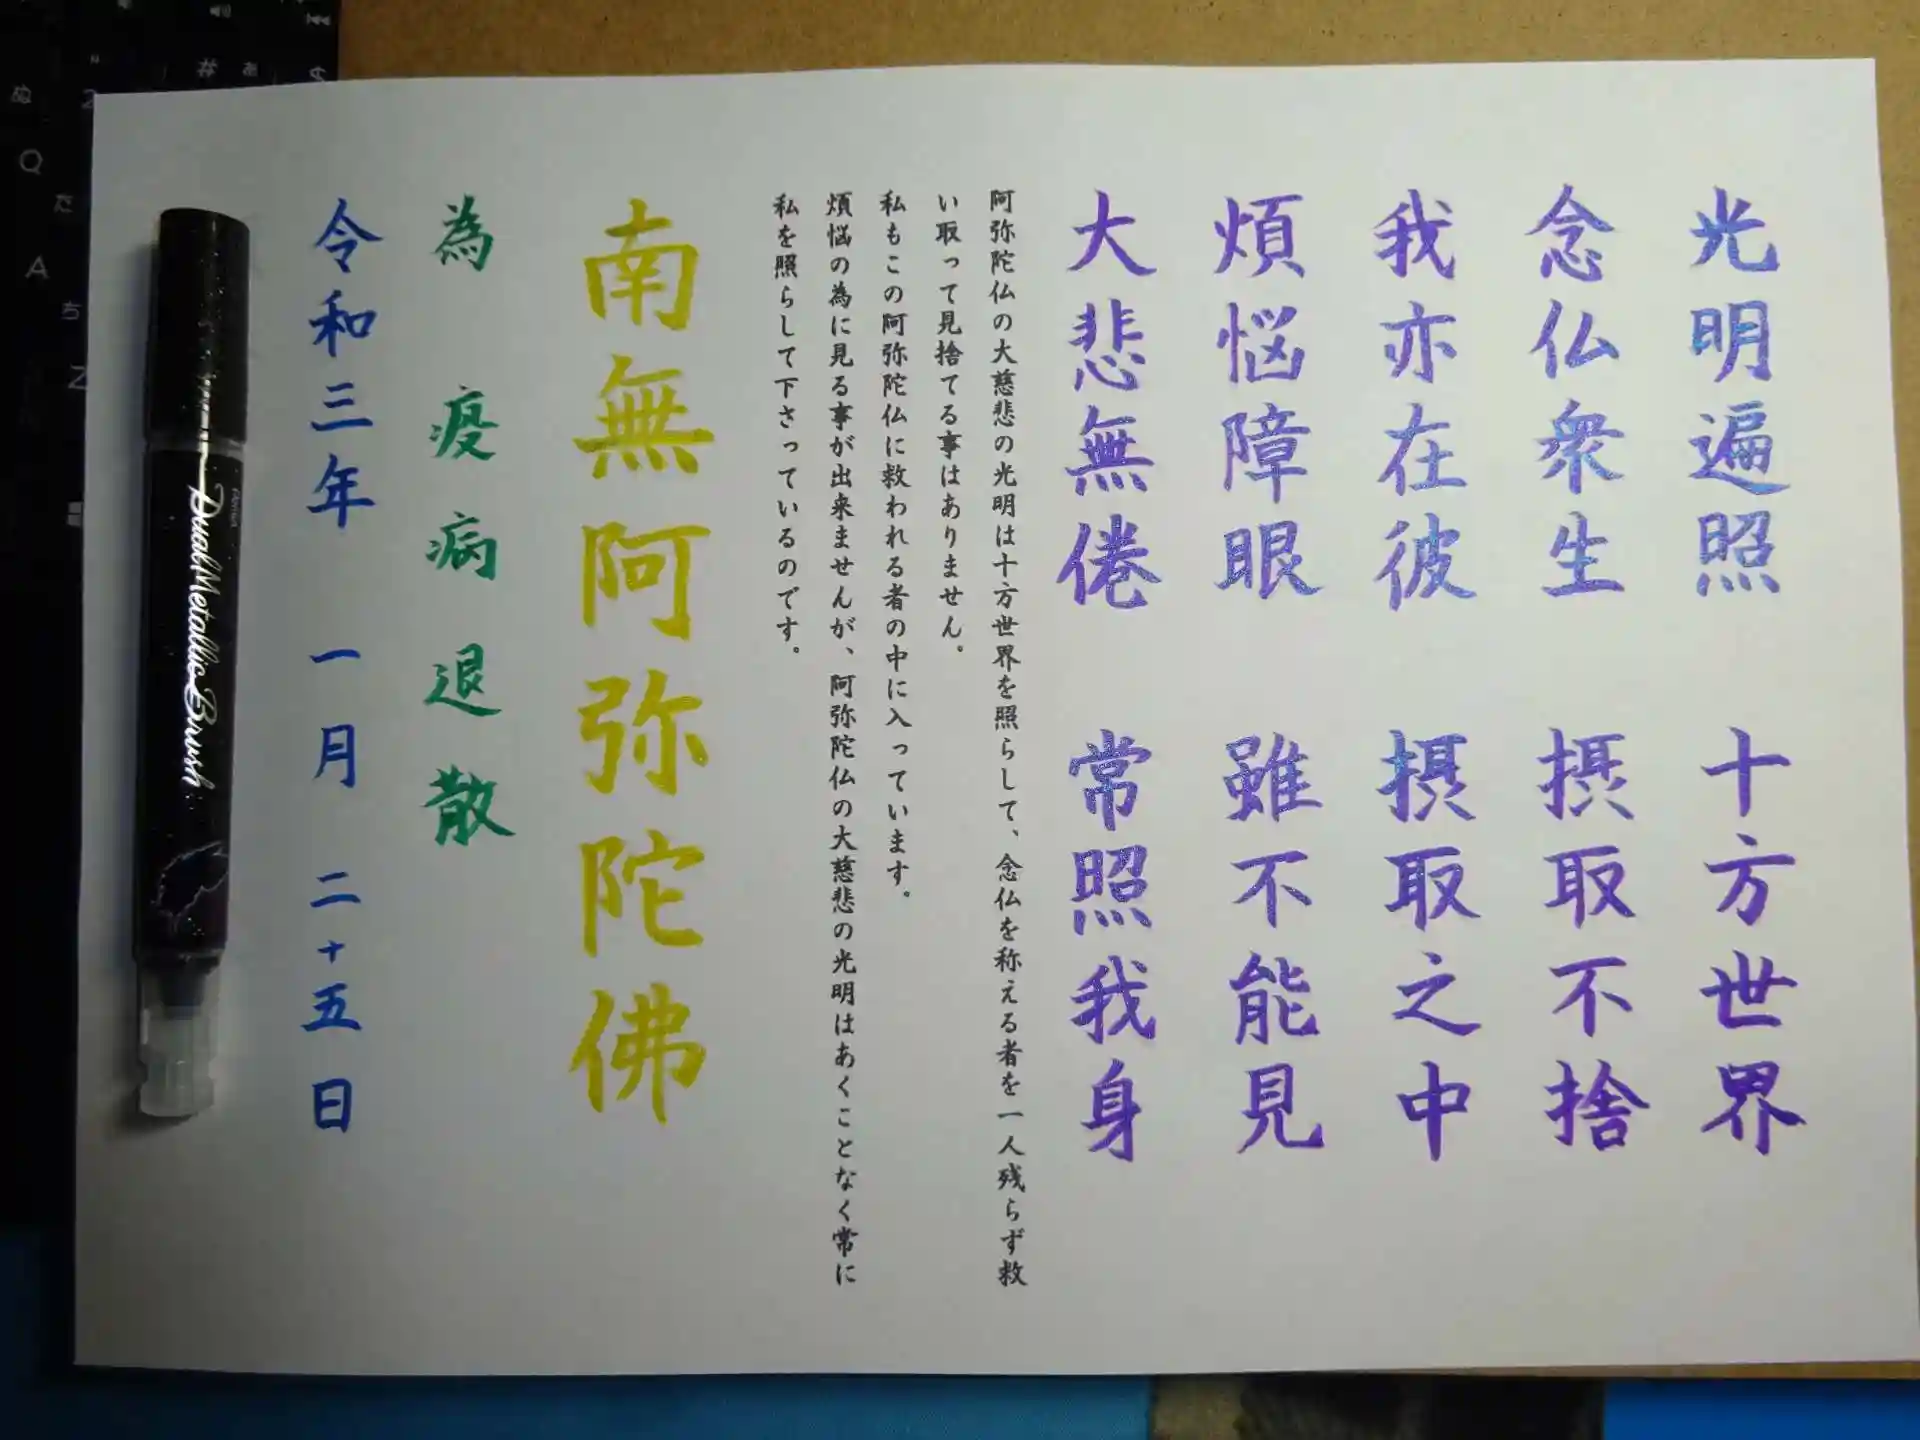 光明遍照　十方世界
念仏衆生　摂取不捨
我亦在彼　摂取之中
煩悩障眼　雖不能見
大悲無倦　常照我身
阿弥陀仏の大慈悲の光明は十方世界を照らして、念仏を称える者を一人残らず救
い取って見捨てる事はありません。
私もこの阿弥陀仏に救われる者の中に入っています。
煩悩の為に見る事が出来ませんが、阿弥陀仏の大慈悲の光明はあくことなく常に
私を照らして下さっているのです。
南無阿弥陀佛
為　疫病退散
令和三年　一月　二十五日
Pentel
Dual Metallic Brush
ぬ
#
2
Q
た
A
ち
Z